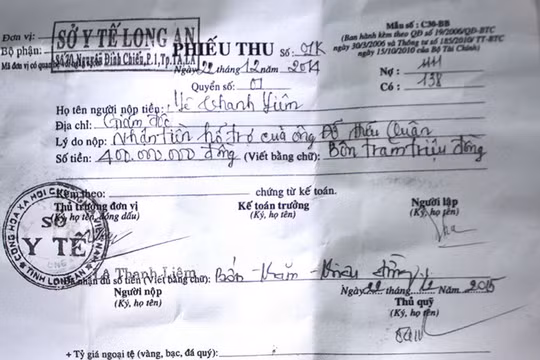 Đơn vị:
SỞ Y TẾ LONG AN
Bộ phận:
Số 70, Nguyễn Đình Chiểu, P.1, Tp.TA,LA
Mã đơn vị có quan
PHIẾU THU Số: 01K
Ngày 22 tháng 12 năm 2014
Quyển số: 01
Mẫu số : C30-BB
(Ban hành kèm theo QĐ số 19/2006/QĐ-BTC
ngày 30/3/2006 và Thông tư số 185/2010/TT-BTC
ngày 15/10/2010 của Bộ Tài Chính)
Nợ : 1111
Có : 138
Họ tên người nộp tiền: Lê Thanh Liêm
Địa chỉ: Giám đốc
Lý do nộp: Nhận tiền hổ trợ của ông Đỗ Quận
Số tiền: 400.000.000 đồng (Viết bằng chữ): Bốn trăm triệu đồng
Kèm theo: chứng từ kế toán.
Thủ trưởng đơn vị
(Ký, họ tên, đóng dấu)
Kế toán trưởng
(Ký, họ tên)
Người lập
(Ký, họ tên)
CỘNG HÒA XÃ HỘI CHỦ NGHĨA VIỆT NAM
SỞ
Y TẾ
TỈNH LONG AN
Lê Thanh Liêm
Đã nhận đủ số tiền (Viết bằng chữ): Bốn trăm triệu đồng
Người nộp
(Ký, họ tên)
Ngày 22 tháng 12 Năm 2015
Thủ quỹ
(Ký, họ tên)
+ Tỷ giá ngoại tệ (vàng, bạc, đá quý):